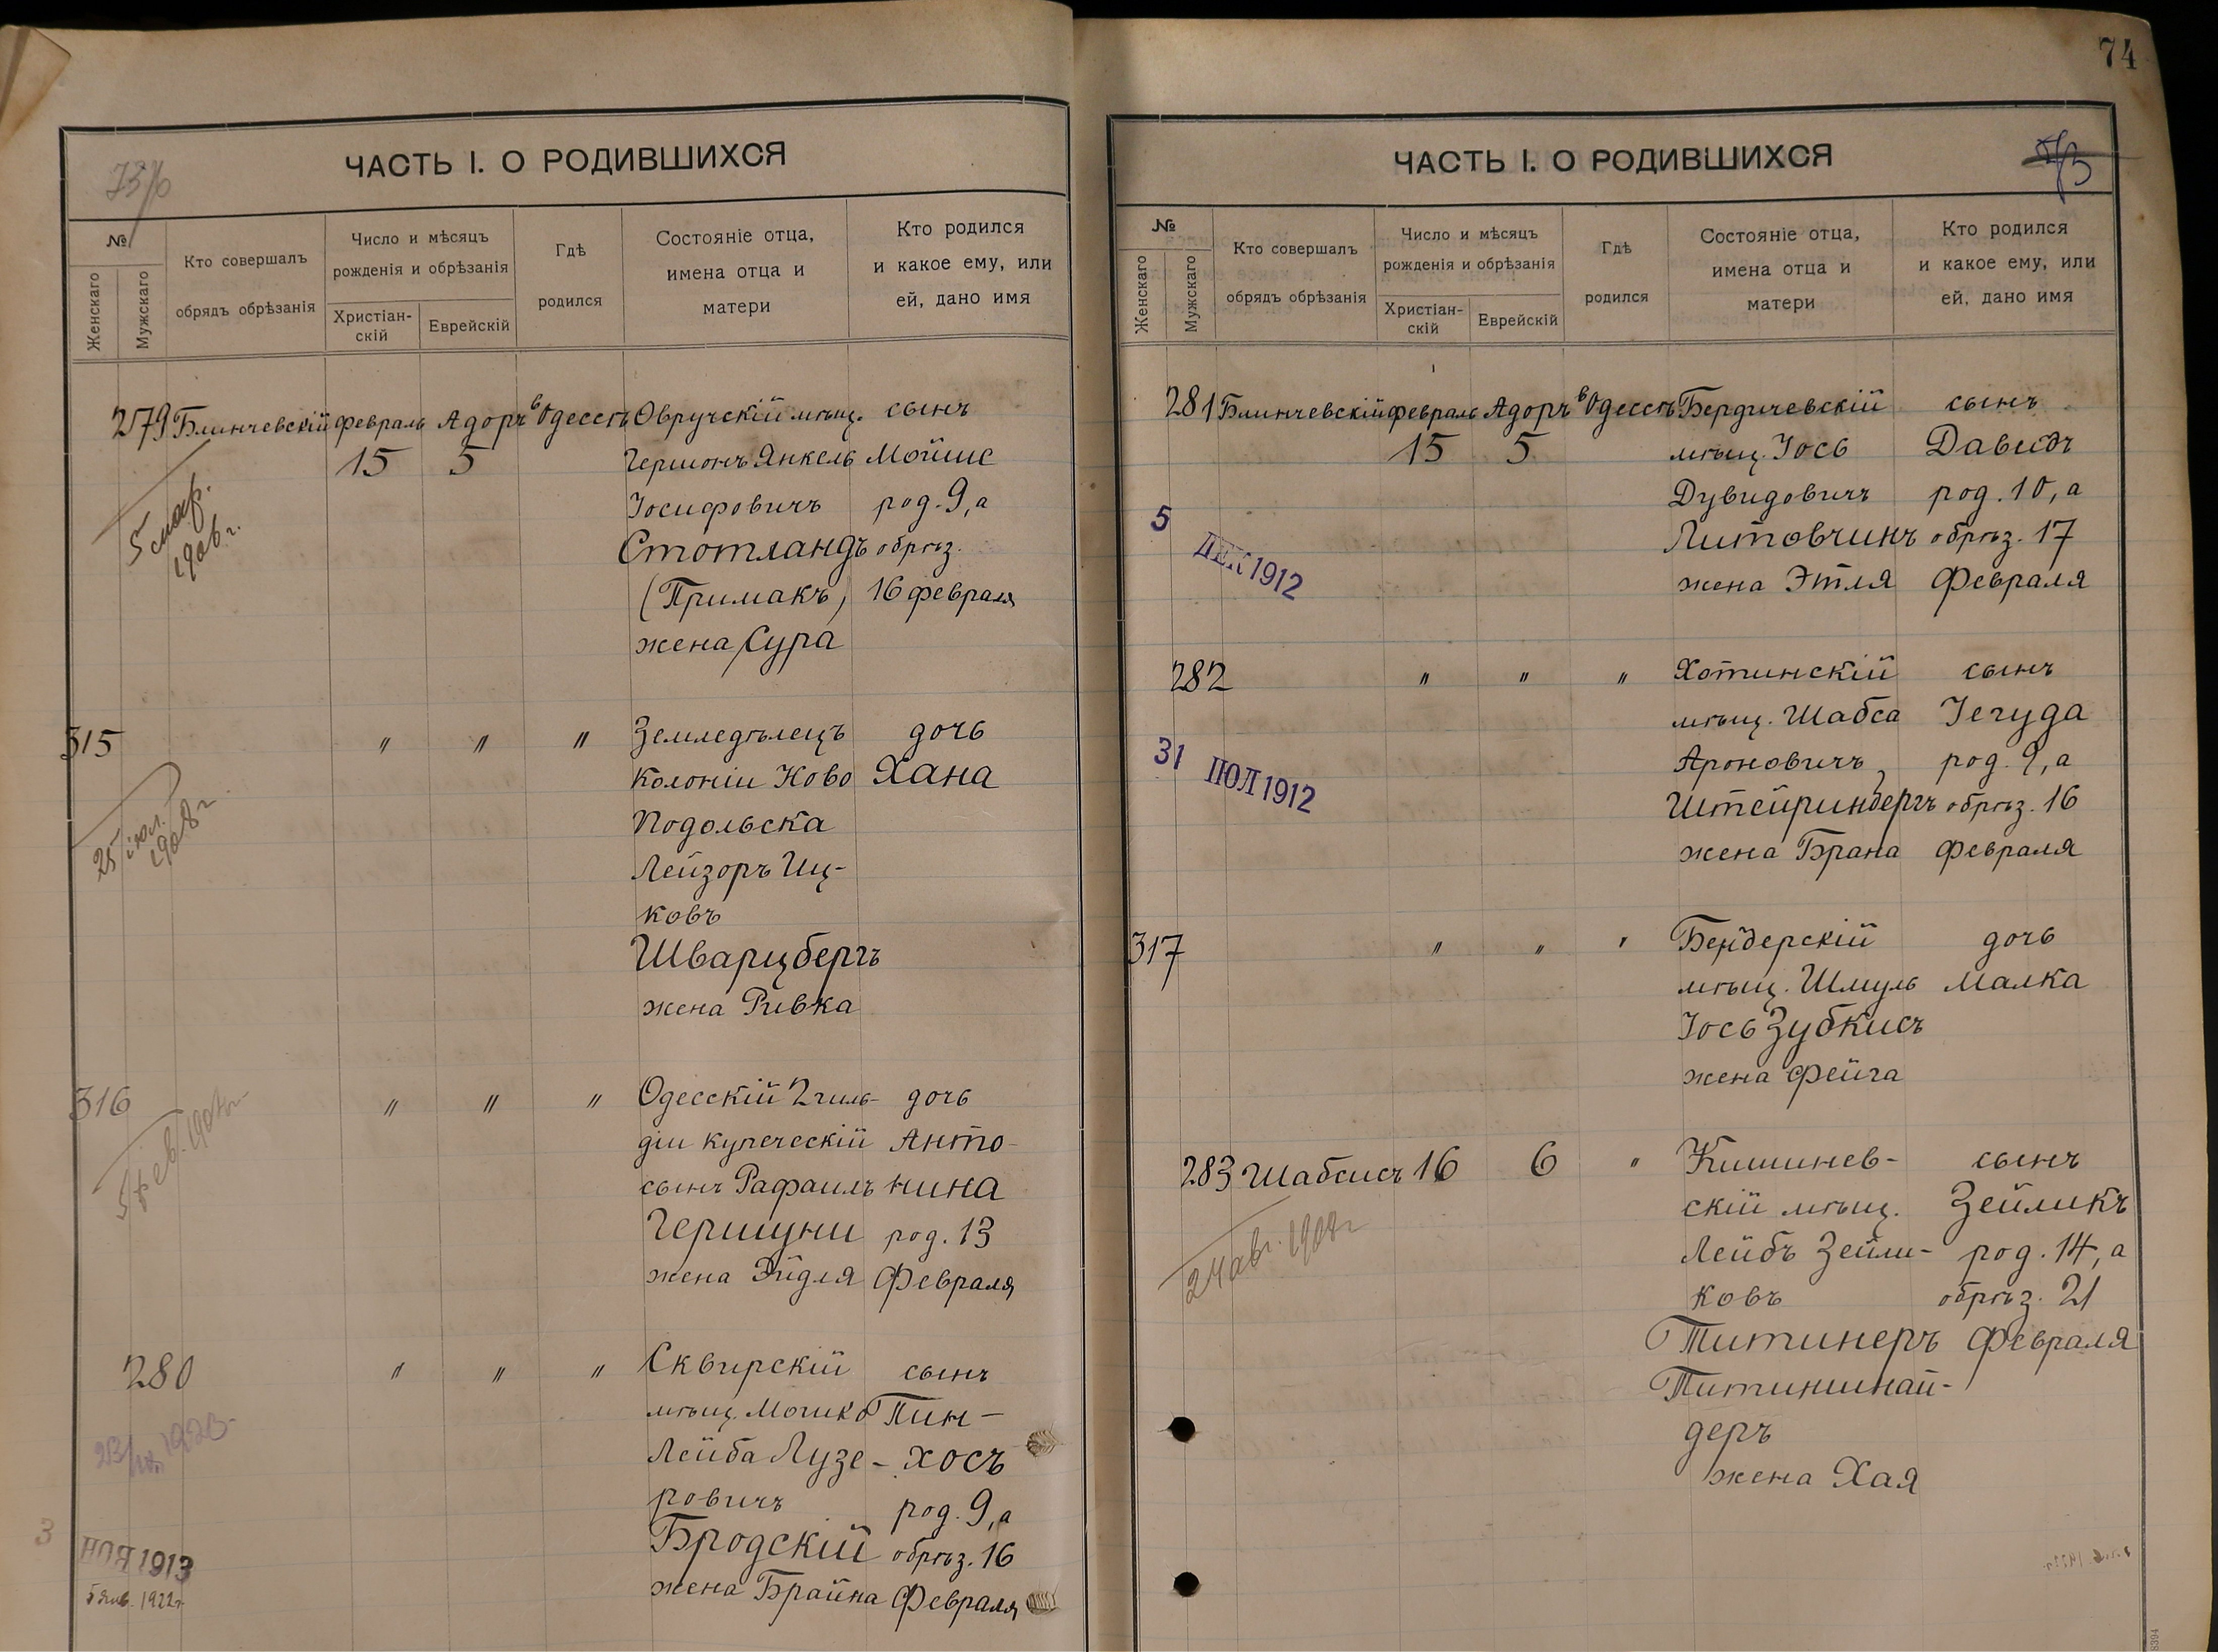 ЧАСТЬ I. О РОДИВШИХСЯ
№
Женскаго
Мужскаго
Кто совершалъ
обрядъ обрѣзанія
Число и мѣсяцъ
рожденія и обрѣзанія
Христіан-
скій
Еврейскій
Гдѣ
родился
Состояніе отца,
имена отца и
матери
Кто родился
и какое ему, или
ей, дано имя
279 Блинчевскій февраль Адоръ в Одессѣ Овручскій мѣщ. сынъ
15 5 Гершонъ Янкель Мойше
Іосифовичъ род. 9, а
Стотландъ обрѣз.
(Примакъ) 16 февраля
жена Сура
5 мар.
1906 г.
315 " " " Земледѣлецъ дочь
колоніи Ново Хана
Подольска
Лейзоръ Иц-
ковъ
Шварцбергъ
жена Ривка
25 іюл.
1908 г.
316 " " " Одесскій 2 гиль- дочь
діи купеческій Анто-
сынъ Рафаилъ нина
Гершуни род. 13
жена Эйдля Февраля
5 фев.
280 " " " Сквирскій сынъ
мѣщ. Мошко Пин-
Лейба Лузе- хосъ
ровичъ род. 9, а
Бродскій обрѣз. 16
жена Брайна Февраля
3
НОЯ 1913
5 янв. 1922 г.
74
ЧАСТЬ I. О РОДИВШИХСЯ
№
Женскаго
Мужскаго
Кто совершалъ
обрядъ обрѣзанія
Число и мѣсяцъ
рожденія и обрѣзанія
Христіан-
скій
Еврейскій
Гдѣ
родился
Состояніе отца,
имена отца и
матери
Кто родился
и какое ему, или
ей, дано имя
281 Блинчевскій февраль Адоръ в Одессѣ Бердичевскій сынъ
15 5 мѣщ. Іось Давидъ
Дувидовичъ род. 10, а
Литовчинъ обрѣз. 17
жена Этля Февраля
5
ДЕК 1912
282 " " " Хотинскій сынъ
мѣщ. Шабса Іегуда
Ароновичъ род. 9, а
Штейринбергъ обрѣз. 16
жена Брана февраля
31 ІЮЛ 1912
317 " " " Бендерскій дочь
мѣщ. Шмуль Малка
Іось Зубкисъ
жена Фейга
283 Шабсисъ 16 6 " Кишинев- сынъ
скій мѣщ. Зейликъ
Лейбъ Зейли- род. 14, а
ковъ обрѣз. 21
Титинеръ Февраля
Титиншнай-
деръ
жена Хая
24 авг.